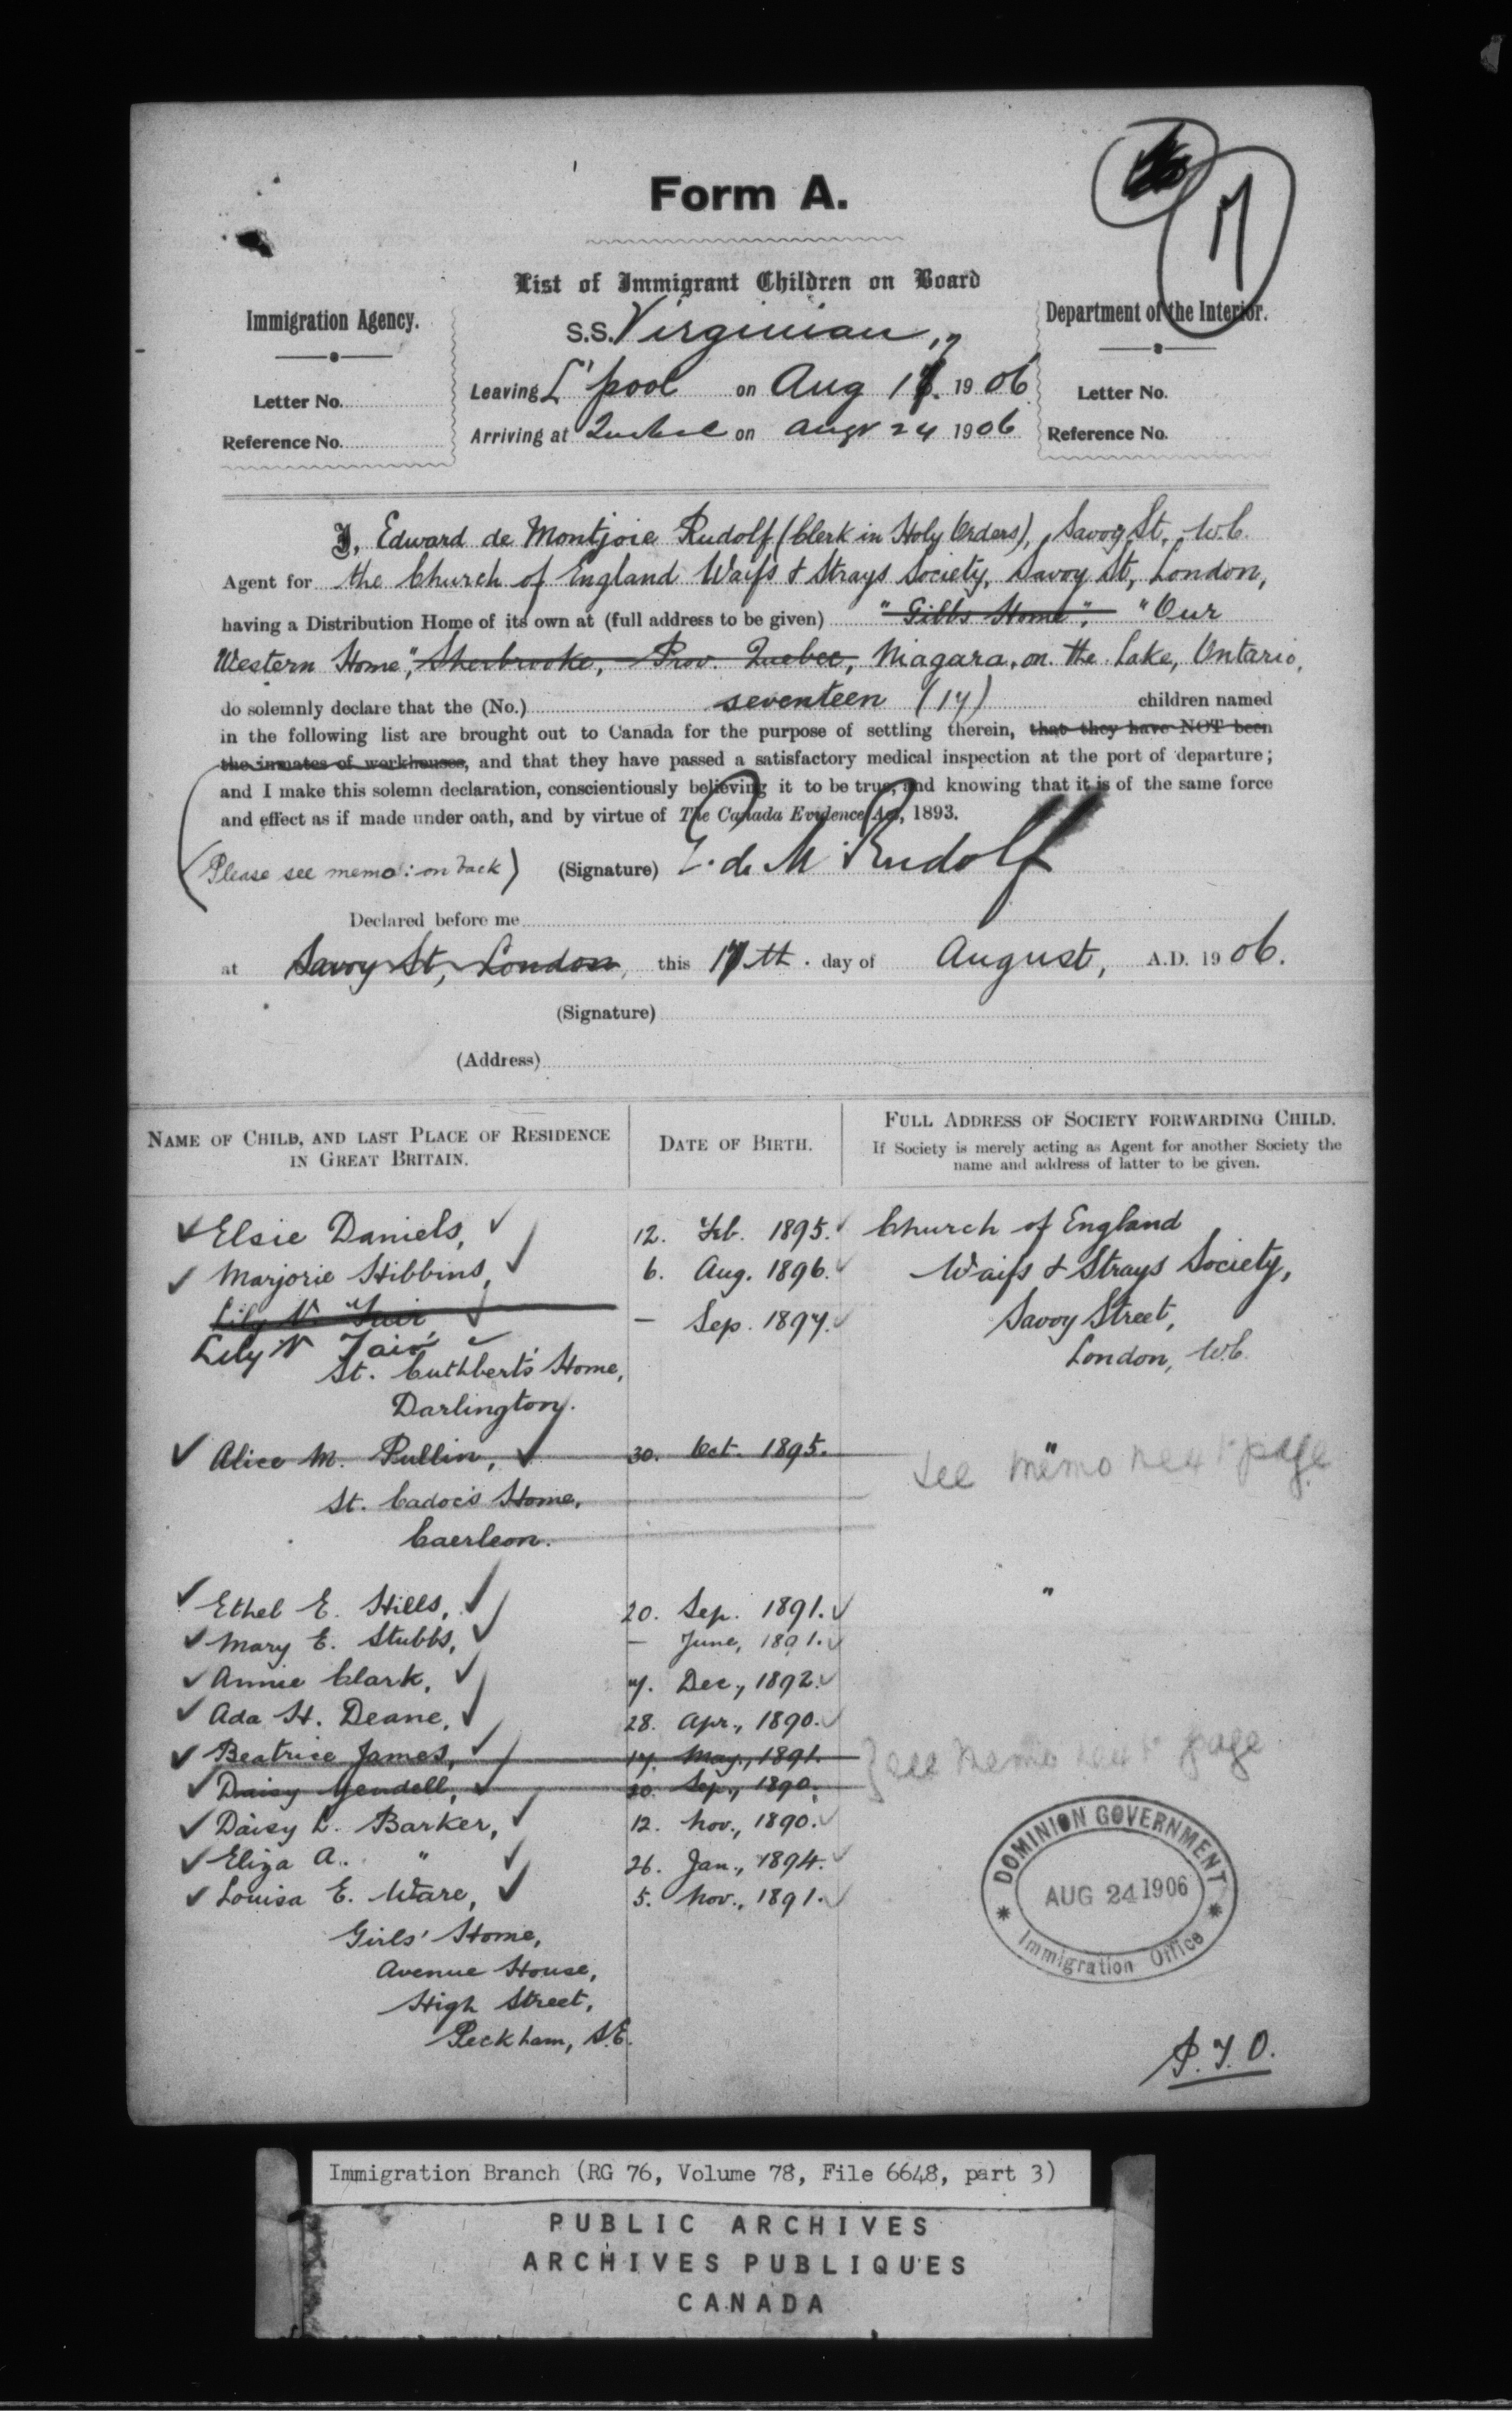 17
Form A.
List of Immigrant Children on Board
Immigration Agency.
Letter No.
Reference No.
S.S. Virginian,
Leaving L'pool on Aug 17. 1906
Arriving at Quebec on Augt 24 1906
Department of the Interior.
Letter No.
Reference No.
I, Edward de Montjoie Rudolf (Clerk in Holy Orders), Savoy St., W.C.
Agent for the Church of England Waifs & Strays Society, Savoy St, London,
having a Distribution Home of its own at (full address to be given) "Gibbs Home", "Our
Western Home", Sherbrooke, Prov. Quebec, Niagara, on the Lake, Ontario,
do solemnly declare that the (No.) seventeen (17) children named
in the following list are brought out to Canada for the purpose of settling therein, that they have NOT been
the inmates of workhouses, and that they have passed a satisfactory medical inspection at the port of departure;
and I make this solemn declaration, conscientiously believing it to be true, and knowing that it is of the same force
and effect as if made under oath, and by virtue of The Canada Evidence Act, 1893.
(Please see memo: on back) (Signature) E. de M Rudolf
Declared before me
at Savoy St, London, this 17th. day of August, A.D. 1906.
(Signature)
(Address)
NAME OF CHILD, AND LAST PLACE OF RESIDENCE
IN GREAT BRITAIN.
DATE OF BIRTH.
FULL ADDRESS OF SOCIETY FORWARDING CHILD.
If Society is merely acting as Agent for another Society the
name and address of latter to be given.
Elsie Daniels, 12. Feb. 1895. Church of England
Marjorie Hibbins, 6. Aug. 1896. Waifs & Strays Society,
Lily V. Fair — Sep. 1897. Savoy Street,
Lily V Fair London, W.C.
St. Cuthbert's Home,
Darlington.
Alice M. Pullin, 30. Oct. 1895. "
see memo next page
St. Cadoc's Home,
Caerleon.
Ethel E. Hills, 20. Sep. 1891. "
Mary E. Stubbs, — June, 1891.
Annie Clark, 7. Dec., 1892.
Ada H. Deane, 28. Apr., 1890.
Beatrice James, 17. May, 1891. see memo next page
Daisy Yendell, 30. Sep., 1890.
Daisy L. Barker, 12. Nov., 1890.
Eliza A. " 26. Jan., 1894.
Louisa E. Ware, 5. Nov., 1891.
Girls' Home,
Avenue House,
High Street,
Peckham, S.E.
DOMINION GOVERNMENT
AUG 24 1906
Immigration Office
P.T.O.
Immigration Branch (RG 76, Volume 78, File 6648, part 3)
PUBLIC ARCHIVES
ARCHIVES PUBLIQUES
CANADA